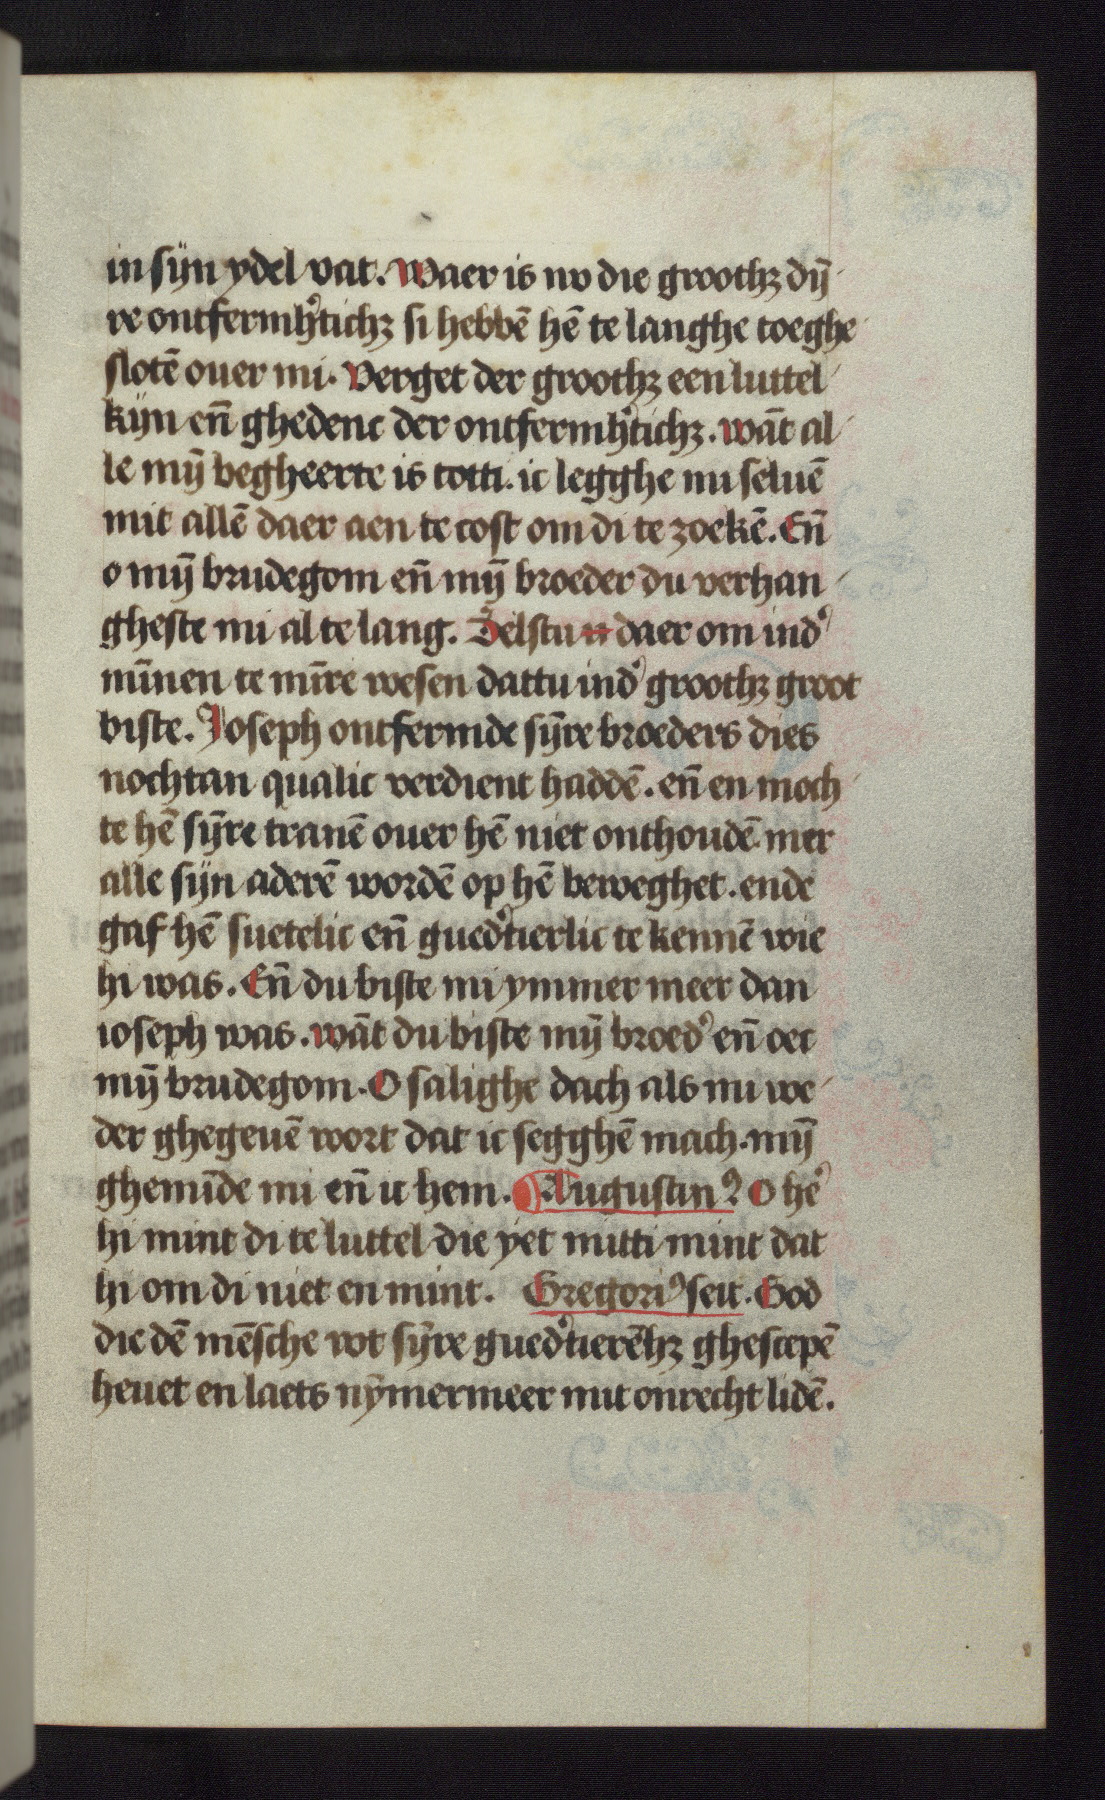 in sijn ydel vat. Waer is nv die groothꝫ dyn̄
re ontfermhꝰtichꝫ si hebbē hē te langhe toeghe
slotē ouer mi. Verget der groothꝫ een luttel
kijn en̄ ghedenc der ontfermhꝰtichꝫ. wāt al
le mȳ begheerte is totti. ic legghe mi seluē
mit allē daer aen te cost om di te zoekē. En̄
o mȳ brudegom en̄ mȳ broeder du verhan
gheste mi al te lang. Selstu n daer om indꝰ
mīnen te mīre wesen dattu indꝰ groothꝫ groot
biste. Joseph ontfermde sȳre broeders dies
nochtan qualic verdient haddē. en̄ en moch
te hē sȳre tranē ouer hē niet onthoudē. mer
alle sijn aderē wordē op hē beweghet. ende
gaf hē suetelic en̄ guedꝰtierlic te kennē wie
hi was. En̄ du biste mi ymmer meer dan
ioseph was. wāt du biste mȳ broedꝰ en̄ oec
mȳ brudegom. O salighe dach als mi we
der ghegeuē wort dat ic segghē mach. mȳ
ghemīde mi en̄ ic hem. Augustinꝰ O heꝰ
hi mint di te luttel die yet mitti mint dat
hi om di niet en mint. Gregoriꝰ seit. God
die dē mēsche wt sȳre guedꝰtierēhꝫ ghescepē
heuet en laets nȳmermeer mit onrecht lidē.